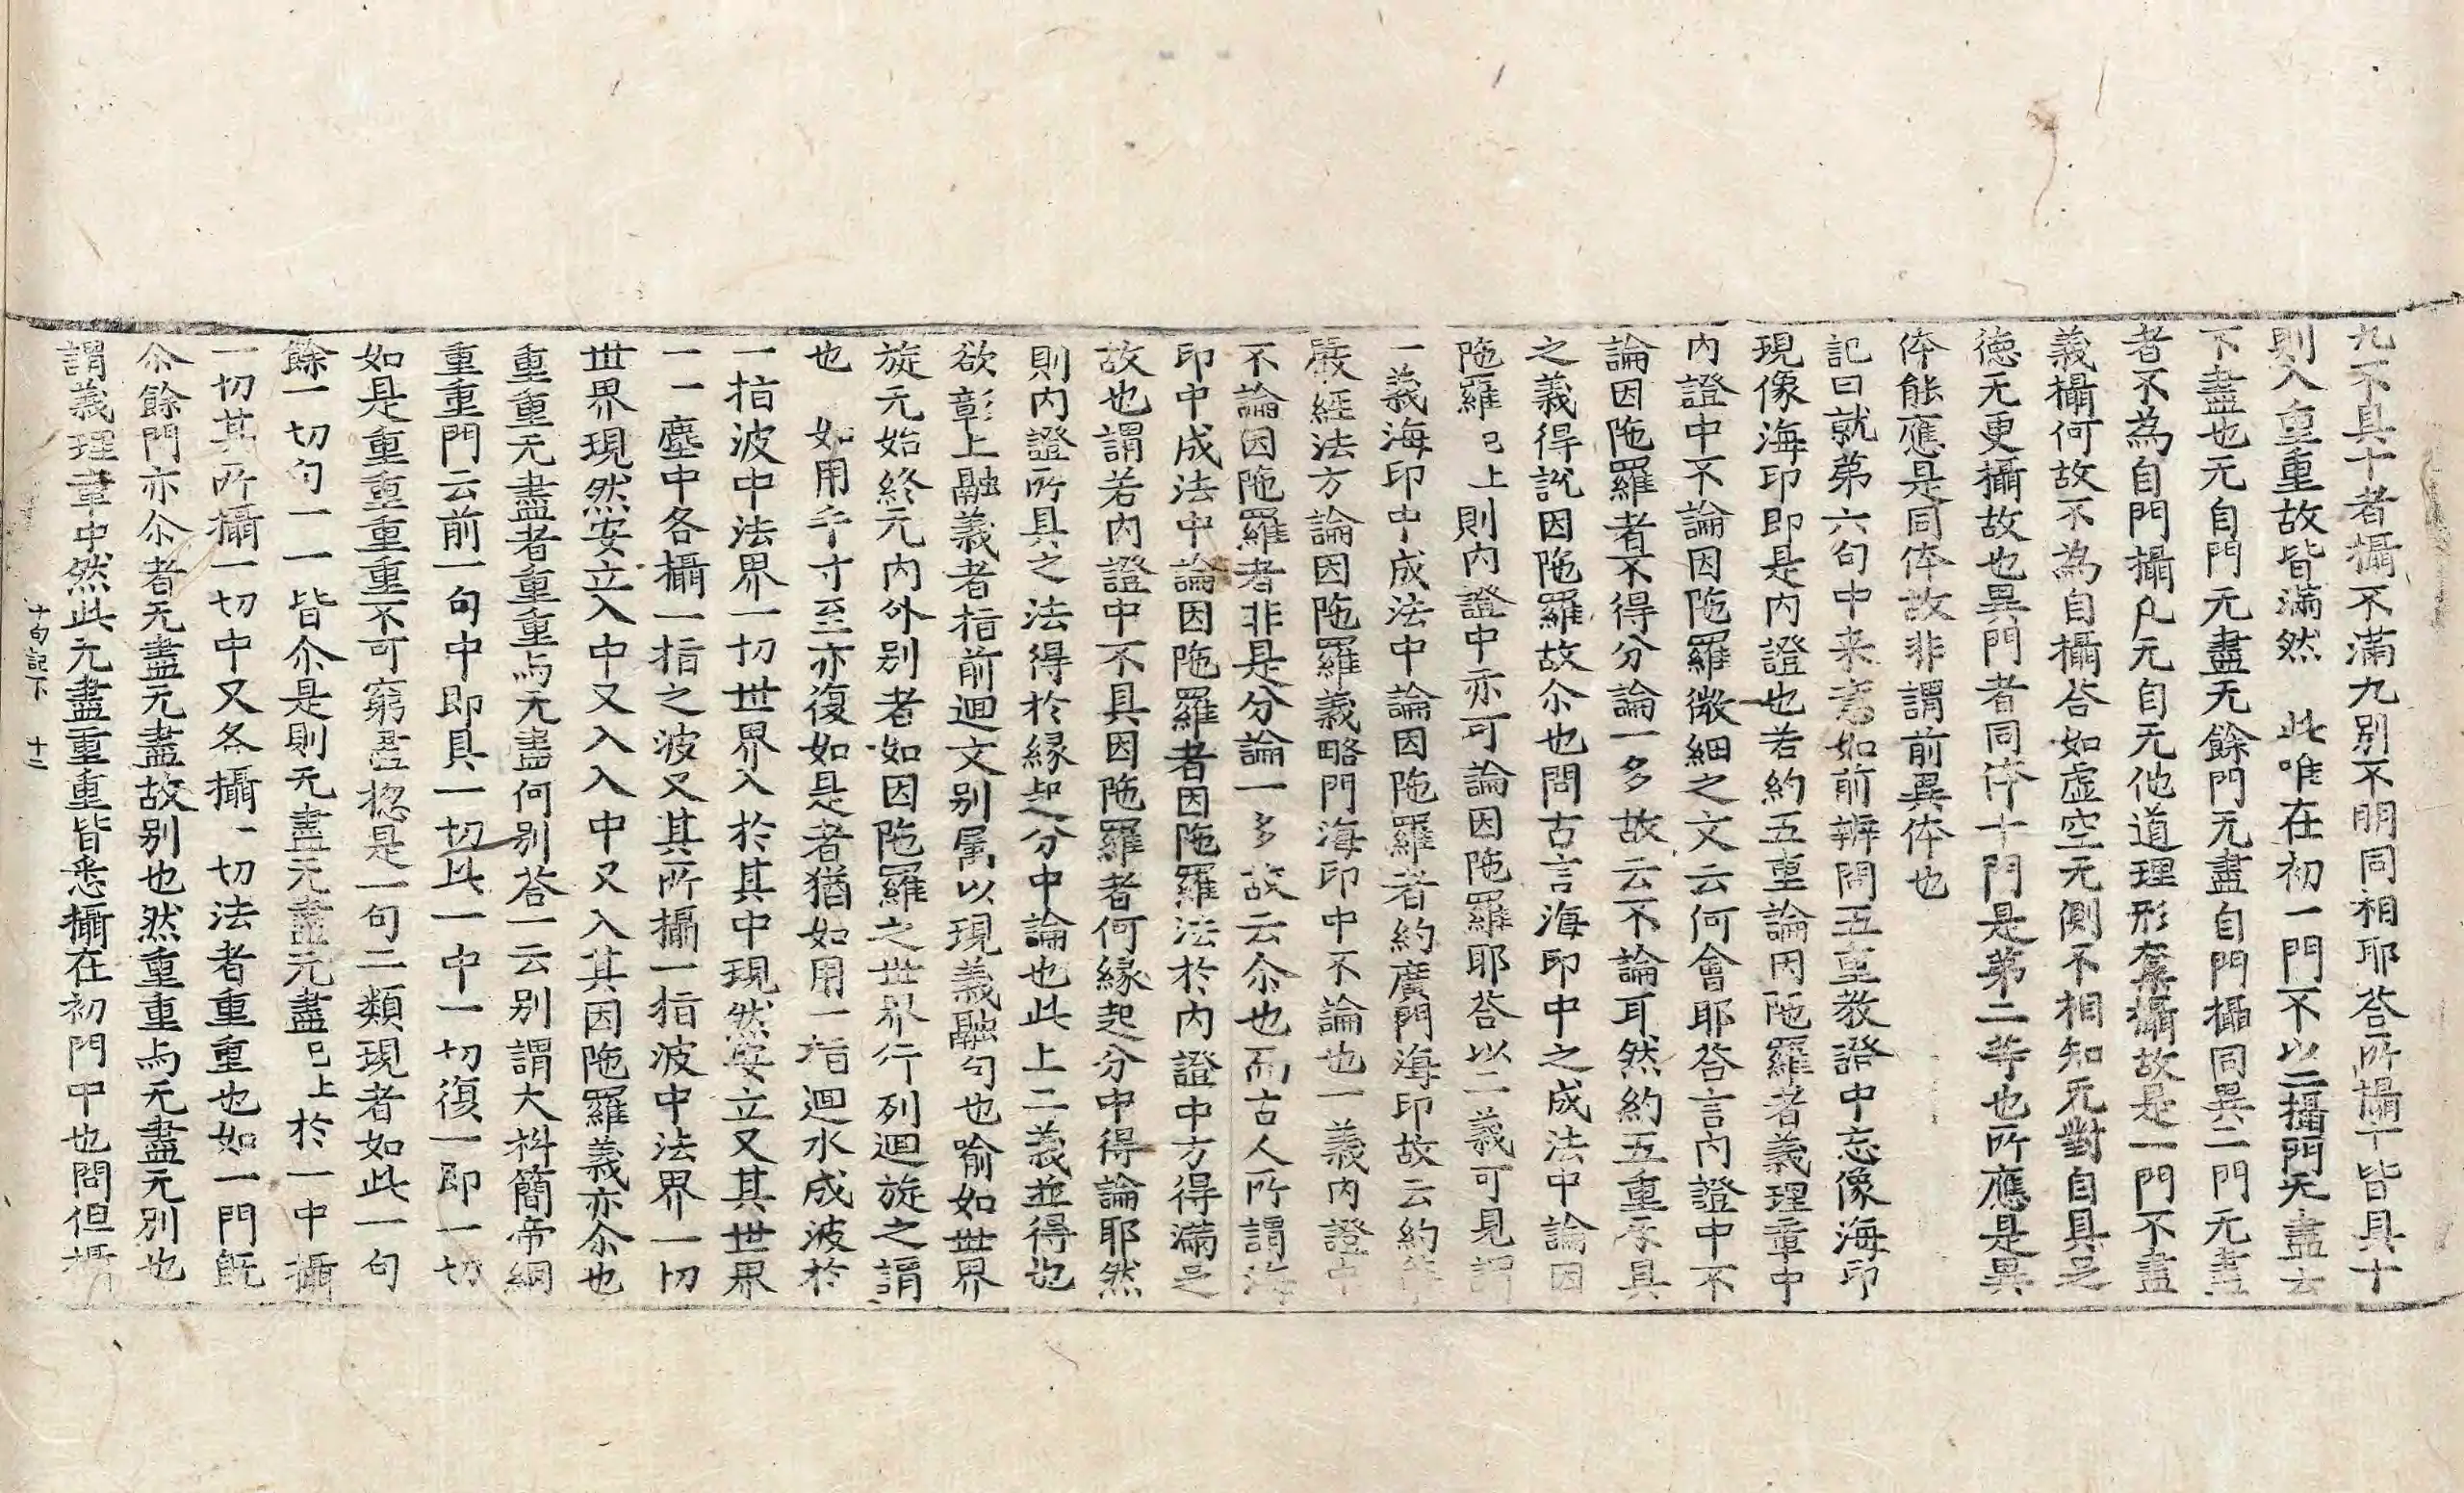 九不具十者攝不滿九別不明同相耶荅所攝下皆具十
則入重重故皆滿然　此唯在初一門不以二攝門无盡去
下盡也无自門无盡无餘門无盡自門攝同異二門无盡
者不為自門攝凡无自无他道理形奪攝故是一門不盡
義攝何故不為自攝荅如虛空无側不相知无對自具足
徳无更攝故也異門者同体十門是第二等也所應是異
体能應是同体故非謂前異体也
記曰就第六句中来意如前辨問五重教證中忘像海印
現像海印即是内證也若約五重論因陁羅者義理章中
内證中不論因陁羅微細之文云何會耶荅言内證中不
論因陁羅者不得分論一多故云不論耳然約五重具
之義得說因陁羅故尒也問古言海印中之成法中論因
陁羅已上則内證中亦可論因陁羅耶荅以二義可見謂
一義海印中成法中論因陁羅者約廣門海印故云約
嚴經法方論因陁羅義略門海印中不論也一義内證中
不論因陁羅者非是分論一多故云尒也而古人所謂海
印中成法中論因陁羅者因陁羅法於内證中方得滿足
故也謂若内證中不具因陁羅者何緣起分中得論耶然
則内證所具之法得於緣起分中論也此上二義並得也
欲彰上融義者指前迴文別属以現義融句也喻如世界
旋无始終元内外別者如因陁羅之世界行列迴旋之謂
也　如用手寸至亦復如是者猶如用一指迴水成波於
一指波中法界一切世界入於其中現然安立又其世界
一一塵中各攝一指之波又其所攝一指波中法界一切
世界現然安立入中又入入中又入其因陁羅義亦尒也
重重无盡者重重与无盡何別荅一云別謂大料簡帝網
重重門云前一句中即具一切此一中一切復一即一切
如是重重重重不可窮盡揔是一句二類現者如此一句
餘一切句一一皆尒是則无盡无盡无盡已上於一中攝
一切其所攝一切中又各攝一切法者重重也如一門旣
尒餘門亦尒者无盡无盡故別也然重重与无盡无別也
謂義理章中然此无盡重重皆悉攝在初門中也問但攝
十句記下　十二